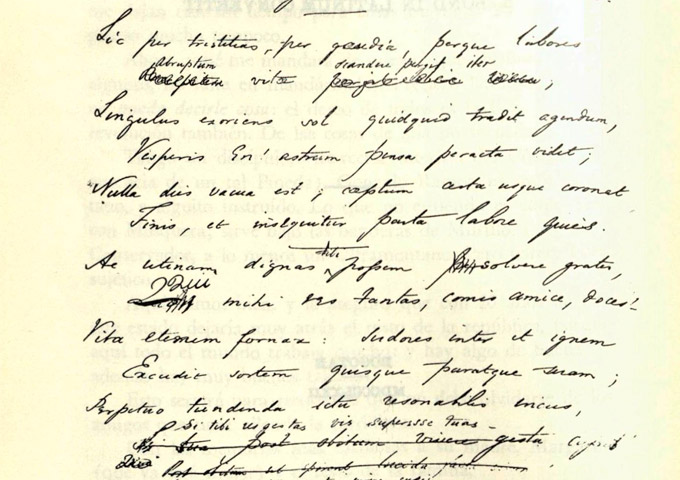 Sic per tristitias, per gaudia, perque labores
Abruptum scandere pergit iter
vitae ;
Singulus exoriens sol quidquid tradit agendum,
Vesperis en! astrum pensa peracta videt ;
Nulla dies vacua est ; captum certa usque coronat
Finis, et insequitur parta labore quies.
Ac utinam dignas tibi possem solvere grates,
Qui mihi res tantas, comis amice, doces!
Vita etenim fornax : sudores inter et ignem
Excudit sortem quisque paratque suam ;
Perpetuo tundenda ictu resonabilis incus,
Si tibi res gestas vis superesse tuas.
sua post obitum vivere gesta cupit
Post obitum